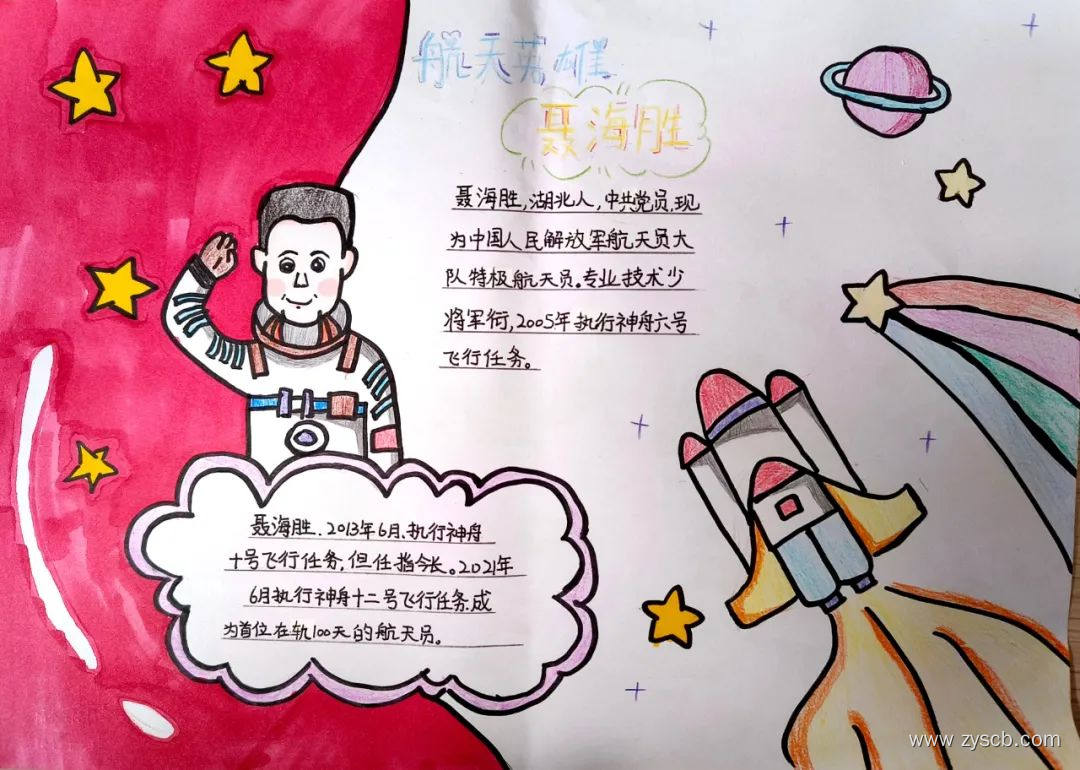 航天英雄
聂海胜
聂海胜,湖北人,中共党员,现
为中国人民解放军航天员大
队特极航天员。专业技术少
将军衔,2005年执行神舟六号
飞行任务。
聂海胜、2013年6月、执行神舟
十号飞行任务,但任指令长。2021年
6月执行神舟十二号飞行任务.成
为首位在轨100天的航天员。
www.zyscb.com